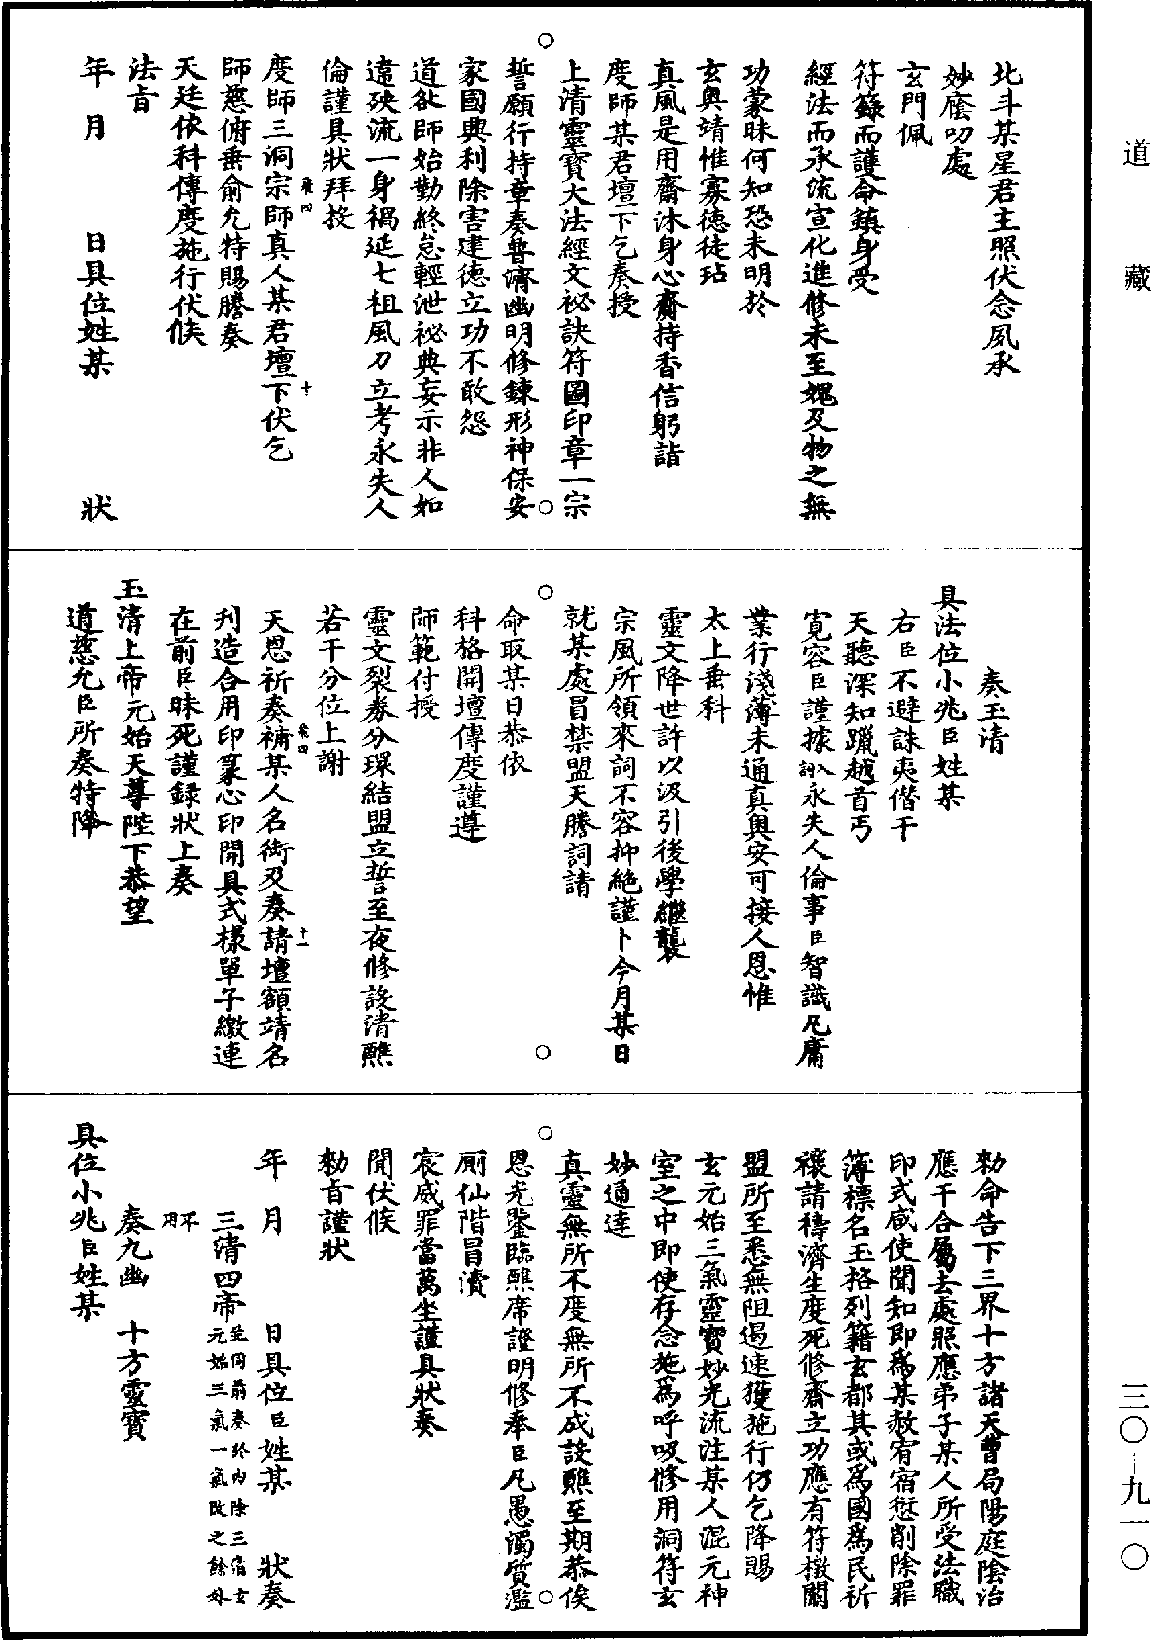 道藏
北斗某星君主照伏念夙承
妙廕叨處
玄門佩
符籙而護命鎮身受
經法而承流宣化進修未至媿及物之無
功蒙昧何知恐未明於
玄奧靖惟寡德徒玷
真風是用齋沐身心齎持香信躬詣
度師某君壇下乞奏授
上清靈寶大法經文祕訣符圖印章一宗
誓願行持章奏普濟幽明修鍊形神保安
家國興利除害建德立功不敢怨
道欲師始勤終怠輕泄祕典妄示非人如
違殃流一身禍延七祖風刀立考永失人
倫謹具狀拜投
度師三洞宗師真人某君壇下伏乞
師慈俯垂俞允特賜謄奏
天廷依科傳度施行伏候
法旨
年 月 日具位姓某 狀
奏玉清
具法位小兆臣姓某
右臣不避誅夷僭干
天聽深知躐越首丐
寬容臣謹據詞入永失人倫事臣智識凡庸
業行淺薄未通真奧安可接人恩惟
太上垂科
靈文降世許以汲引後學繼襲
宗風所領來詞不容抑絕謹卜今月某日
就某處冒禁盟天謄詞請
命取某日恭依
科格開壇傳度謹遵
師範付授
靈文裂券分環結盟立誓至夜修設清醮
若干分位上謝
天恩祈奏補某人名銜及奏請壇額靖名
刋造合用印篆心印開具式樣單子繳連
在前臣昧死謹錄狀上奏
玉清上帝元始天尊陛下恭望
道慈允臣所奏特降
勑命告下三界十方諸天曹局陽庭陰治
應干合屬去處照應弟子某人所受法職
印式咸使聞知即為某赦宥宿愆削除罪
簿標名玉格列籍玄都其或為國為民祈
禳請禱濟生度死修齋立功應有符檄關
盟所至悉無阻遏速獲施行仍乞降賜
玄元始三氣靈寶妙光流注某人混元神
室之中即使存念施為呼吸修用洞符玄
妙通達
真靈無所不度無所不成設醮至期恭俟
恩光鑒臨醮席證明修奉臣凡愚濁質濫
廁仙階冒瀆
宸威罪當萬坐謹具狀奏
聞伏候
勑旨謹狀
年 月 日具位臣姓某 狀奏
三清四帝並同前奏於內除三宿玄
元始三氣一氣改之餘如
不用
奏九幽 十方靈寶
具位小兆臣姓某
三〇-九一〇